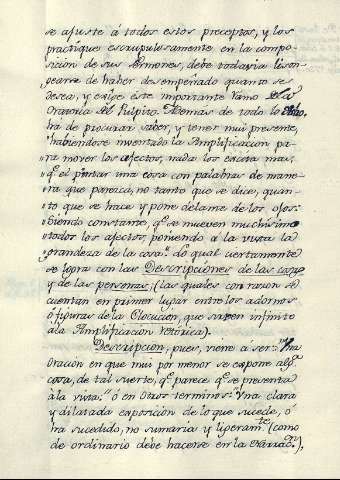 se ajuste á todos estos preceptos, y los
practíque escrupulosamente en la compo-
sicion de sus Sermones, debe todavia lison-
gearse de haber desempeñado quanto se
desea, y exîge este importante ramo de la
Oratoria del Pulpito. Además de todo lo dicho
ha de procurar saber, y tener mui presente,
"habiendose inventado la Amplificacion pa-
"ra mover los afectos, nada los excita mas,
"q.e el pintar una cosa con palabras de mane-
"ra que parezca, no tanto que se dice, quan-
"to que se hace y pone delante de los ojos:
"siendo constante, q.e se mueven muchísimo
"todos los afectos poniendo á la vista la
"grandeza de la cosa." Lo qual ciertamente
se logra con las Descripciones de las cosas
y de las personas; (las quales con razon se
cuentan en primer lugar entre los adornos
ó figuras de la Elocucion, que sirven infinito
á la Amplificacion retórica).
Descripcion, pues, viene a ser: "Una
oracion en que mui por menor se expone alg.a
cosa, de tal suerte, q.e parece q.e se presenta
à la vista." ó en otros terminos: "Una clara
y dilatada exposicion de lo que sucede, ó
ha sucedido, no sumaria y ligeram.te (como
de ordinario debe hacerse en la Narrac.n),